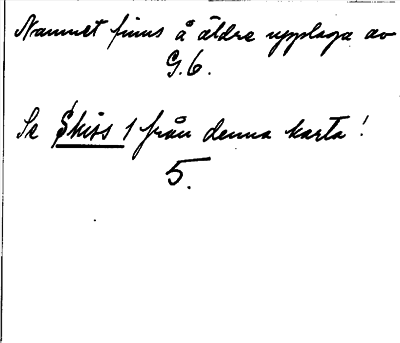 Namnet finns å äldre upplaga av
G.6.
Se Skiss 1 från denna karta!
5.